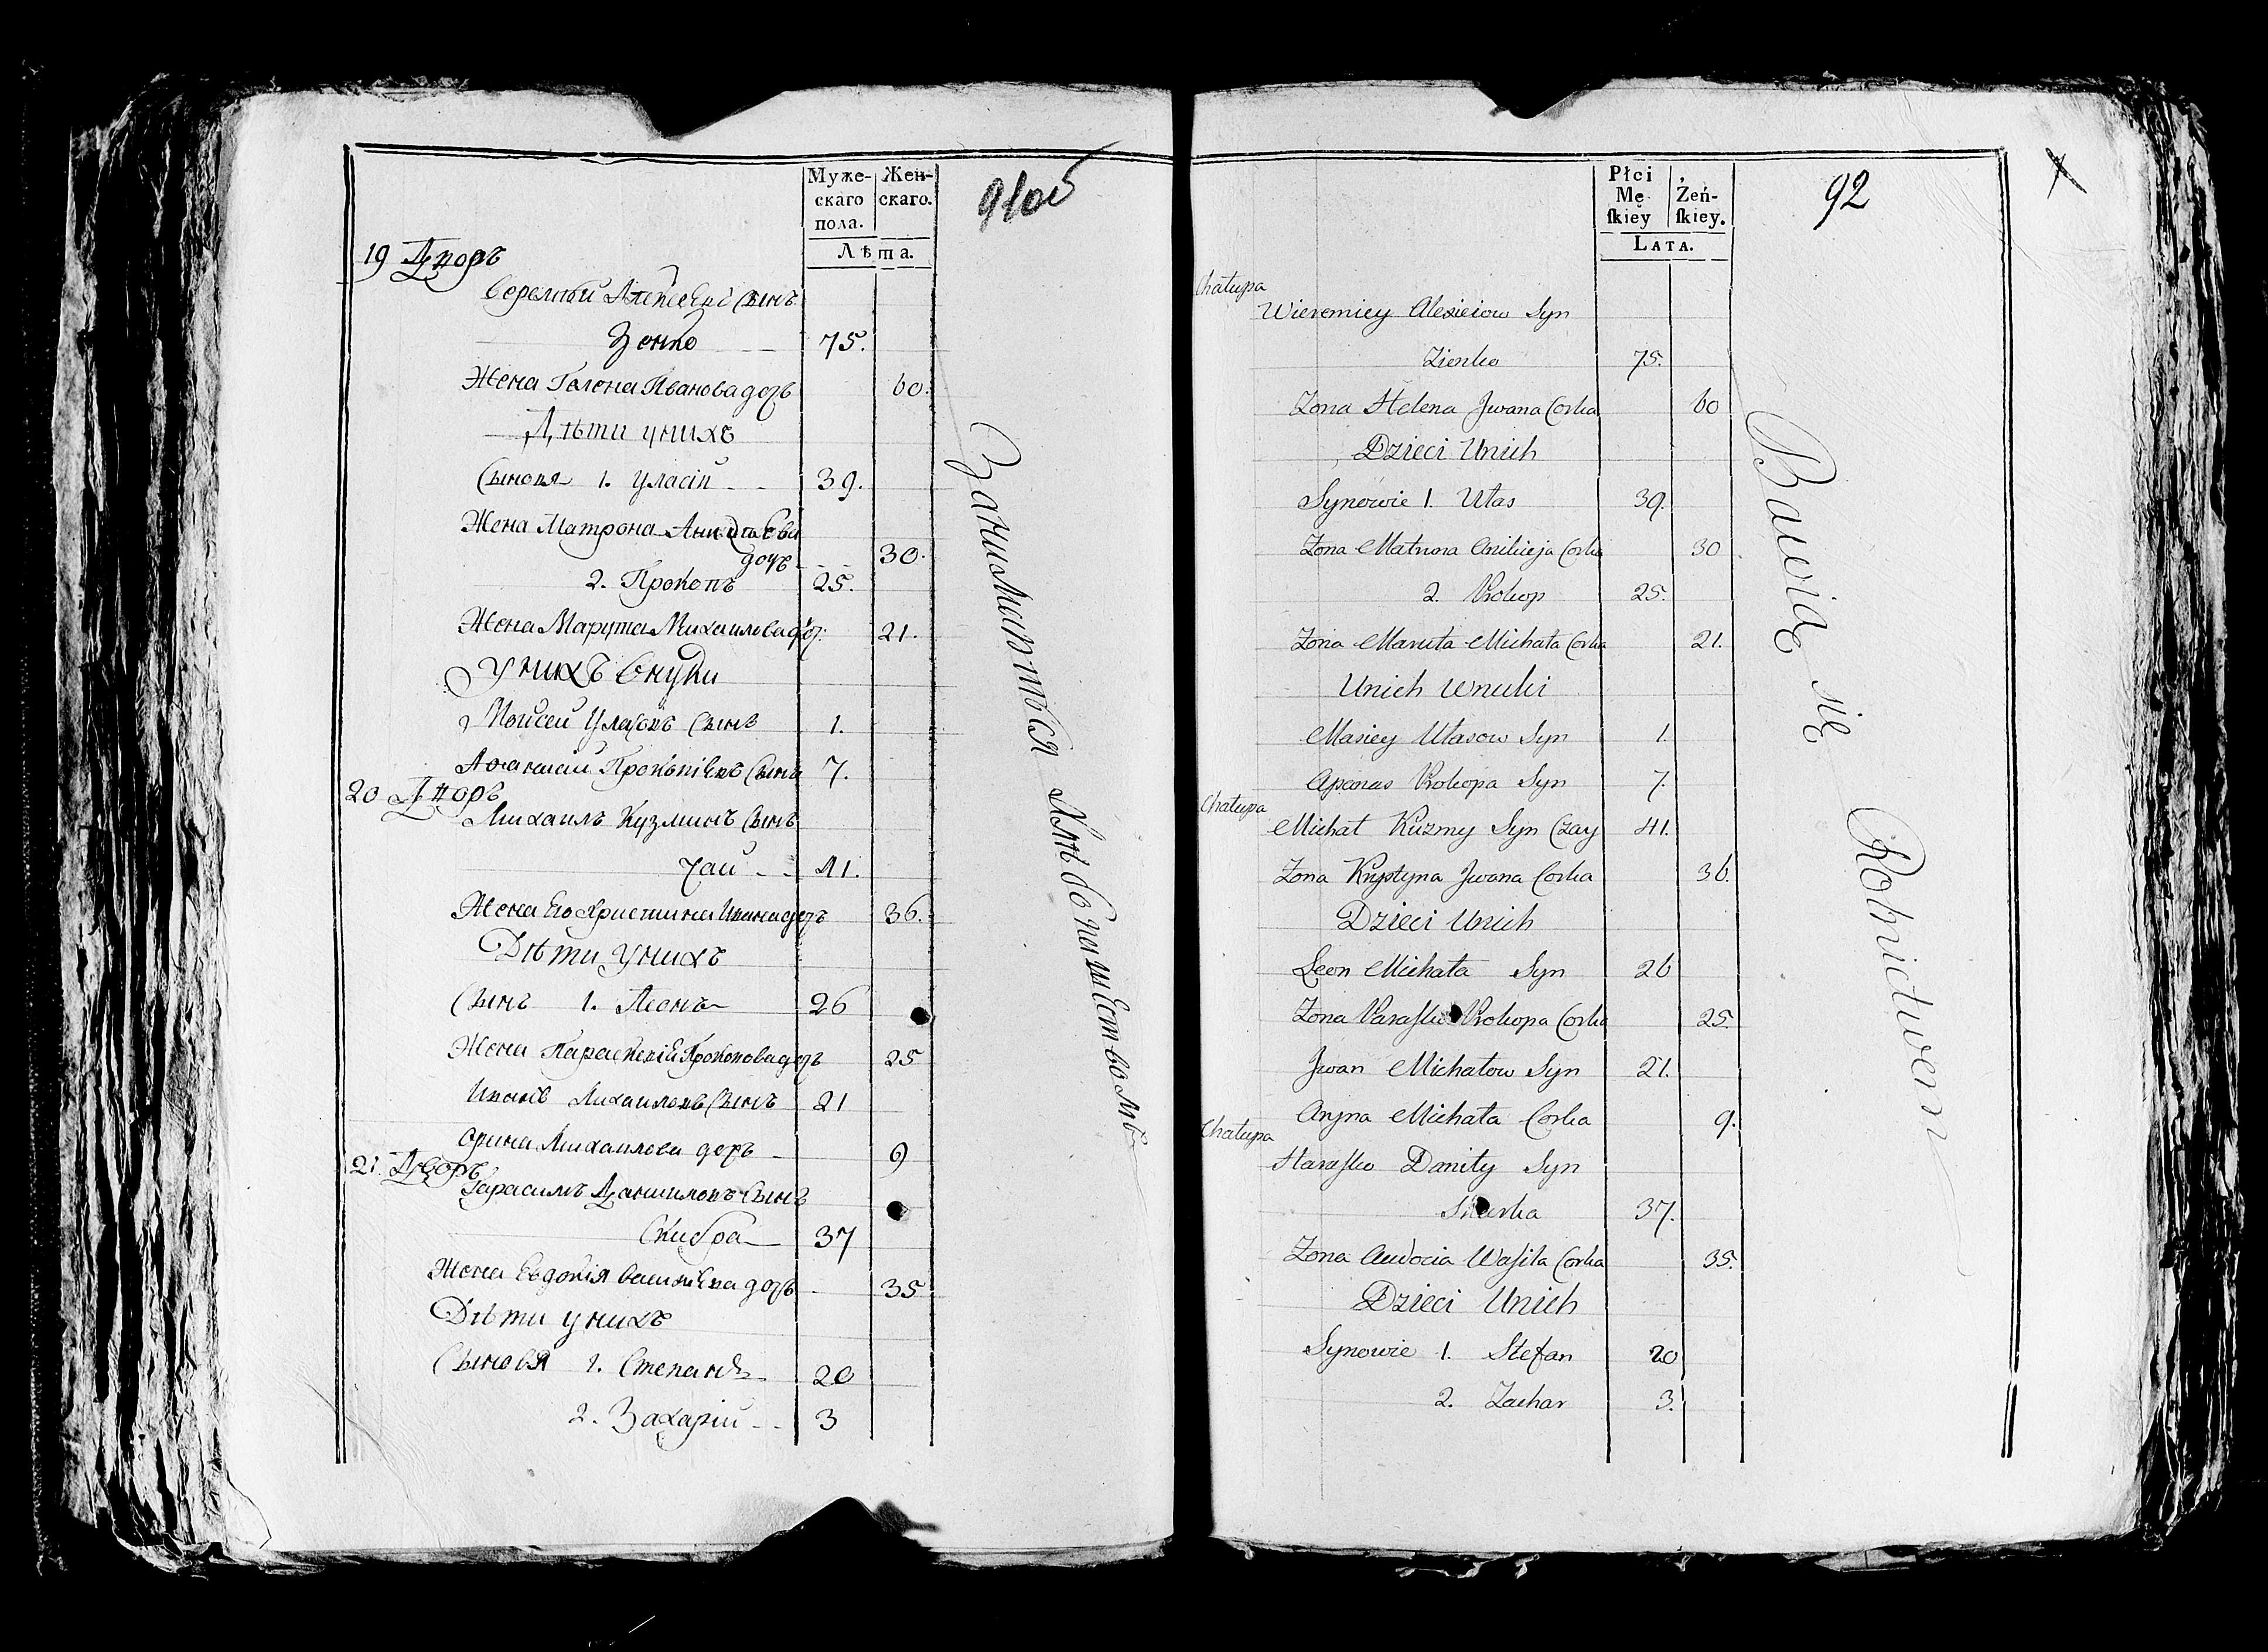 Муже-
скаго
пола.
Жен-
скаго.
Лѣта.
91об
19 Дворъ
Веремѣй Алексѣевъ Сынъ
Зенко 75.
Жена Галена Иванова дочь 60.
Дѣти униxъ
Сыновя 1. Уласій 39.
Жена Матрона
дочь 30.
2. Прокопъ 25.
Жена Марута Михаилова доч: 21.
Униxъ Внуки
Моисей Уласовъ Сынъ 1.
Афанасій Прокопіевъ Сынъ 7.
20 Дворъ
Михаилъ Кузминъ Сынъ
Чай 41.
Жена Его Христина Ивана дочь 36.
Дѣти Униxъ
Сынъ 1. Леонъ 26
Жена Параскевія Прокопова дочь 25
Иванъ Михаиловъ Сынъ 21
Орина Михаилова дочь 9
21. Дворъ
Гарасимъ Даниловъ Сынъ
37
Жена Евдокія Василіева дочь 35
Дѣти униxъ
Сыновя 1. Степанъ 20
2. Захарій 3
Занимаются Хлѣбопашествомъ
Płci
Mę
ſkiey
Żeń-
ſkiey.
LATA.
92
Chałupa
Wieremiey Alexieiow Syn
Zienko 75.
Zona Helena Jwana Corka 60
Dzieci Unich
Synowie 1. Ułas 39.
Zona Matrona Anikieja Corka 30
2. Prokop 25.
Zona Maruta Michała Corka 21.
Unich Wnuki
Masiey Ułasow Syn 1.
Apanas Prokopa Syn 7.
Chałupa
Michał Kuzmy Syn Czay 41.
Zona Krystyna Jwana Corka 36.
Dzieci Unich
Leon Michała Syn 26
Zona Prokopa Corka 25.
Jwan Michałow Syn 21.
Aryna Michała Corka 9.
Chałupa
Haraſko Daniły Syn
37.
Zona Awdocia Waſila Corka 35.
Dzieci Unich
Synowie 1. Stefan 20
2. Zachar 3.
Bawią się Rolnictwem